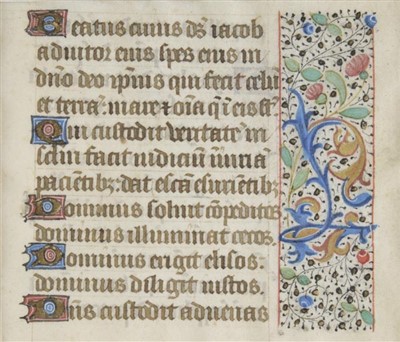 Beatus cuius ds iacob
adiutor eius spes eius in
dno deo ipsius qui fecit celu
et terra: mare et oia q in eis st
Qui custodit veritate in
sclm facit iudiciu iniuria
pacientibz: dat esca esurientibz
Dominus soluit copeditos
dominus illuminat cecos.
Dominus erigit elisos:
dominus diligit iustos.
Dns custodit aduenas